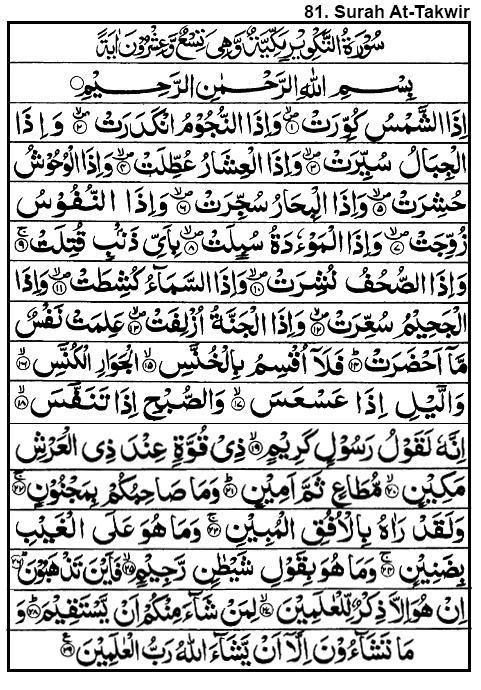 81. Surah At-Takwir
سُوْرَةُ التَّكْوِيْرِ مَكِّيَّةٌ وَّهِىَ تِسْعٌ وَّعِشْرُوْنَ اٰيَةً
بِسْمِ اللّٰهِ الرَّحْمٰنِ الرَّحِيْمِ
اِذَا الشَّمْسُ كُوِّرَتْ ۙ۱ وَاِذَا النُّجُوْمُ انْكَدَرَتْ ۙ۲ وَاِذَا
الْجِبَالُ سُيِّرَتْ ۙ۳ وَاِذَا الْعِشَارُ عُطِّلَتْ ۙ۴ وَاِذَا الْوُحُوْشُ
حُشِرَتْ ۙ۵ وَاِذَا الْبِحَارُ سُجِّرَتْ ۙ۶ وَاِذَا النُّفُوْسُ
زُوِّجَتْ ۙ۷ وَاِذَا الْمَوْءٗدَةُ سُىِٕلَتْ ۙ۸ بِاَىِّ ذَنْۢبٍ قُتِلَتْ ۚ۹
وَاِذَا الصُّحُفُ نُشِرَتْ ۙ۱۰ وَاِذَا السَّمَآءُ كُشِطَتْ ۙ۱۱ وَاِذَا
الْجَحِيْمُ سُعِّرَتْ ۙ۱۲ وَاِذَا الْجَنَّةُ اُزْلِفَتْ ۙ۱۳ عَلِمَتْ نَفْسٌ
مَّاۤ اَحْضَرَتْ ؕ۱۴ فَلَاۤ اُقْسِمُ بِالْخُنَّسِ ۙ۱۵ الْجَوَارِ الْكُنَّسِ ۙ۱۶
وَالَّيْلِ اِذَا عَسْعَسَ ۙ۱۷ وَالصُّبْحِ اِذَا تَنَفَّسَ ۙ۱۸
اِنَّهٗ لَقَوْلُ رَسُوْلٍ كَرِيْمٍ ۙ۱۹ ذِىْ قُوَّةٍ عِنْدَ ذِى الْعَرْشِ
مَكِيْنٍ ۙ۲۰ مُّطَاعٍ ثَمَّ اَمِيْنٍ ؕ۲۱ وَمَا صَاحِبُكُمْ بِمَجْنُوْنٍ ۚ۲۲
وَلَقَدْ رَاٰهُ بِالْاُفُقِ الْمُبِيْنِ ۚ۲۳ وَمَا هُوَ عَلَى الْغَيْبِ
بِضَنِيْنٍ ۚ۲۴ وَمَا هُوَ بِقَوْلِ شَيْطٰنٍ رَّجِيْمٍ ۙ۲۵ فَاَيْنَ تَذْهَبُوْنَ ؕ۲۶
اِنْ هُوَ اِلَّا ذِكْرٌ لِّلْعٰلَمِيْنَ ۙ۲۷ لِمَنْ شَآءَ مِنْكُمْ اَنْ يَّسْتَقِيْمَ ؕ۲۸ وَ
مَا تَشَآءُوْنَ اِلَّاۤ اَنْ يَّشَآءَ اللّٰهُ رَبُّ الْعٰلَمِيْنَ ۲۹